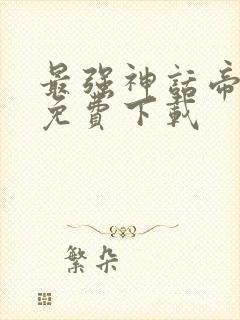 最强神話帝
免費下載
繁朵